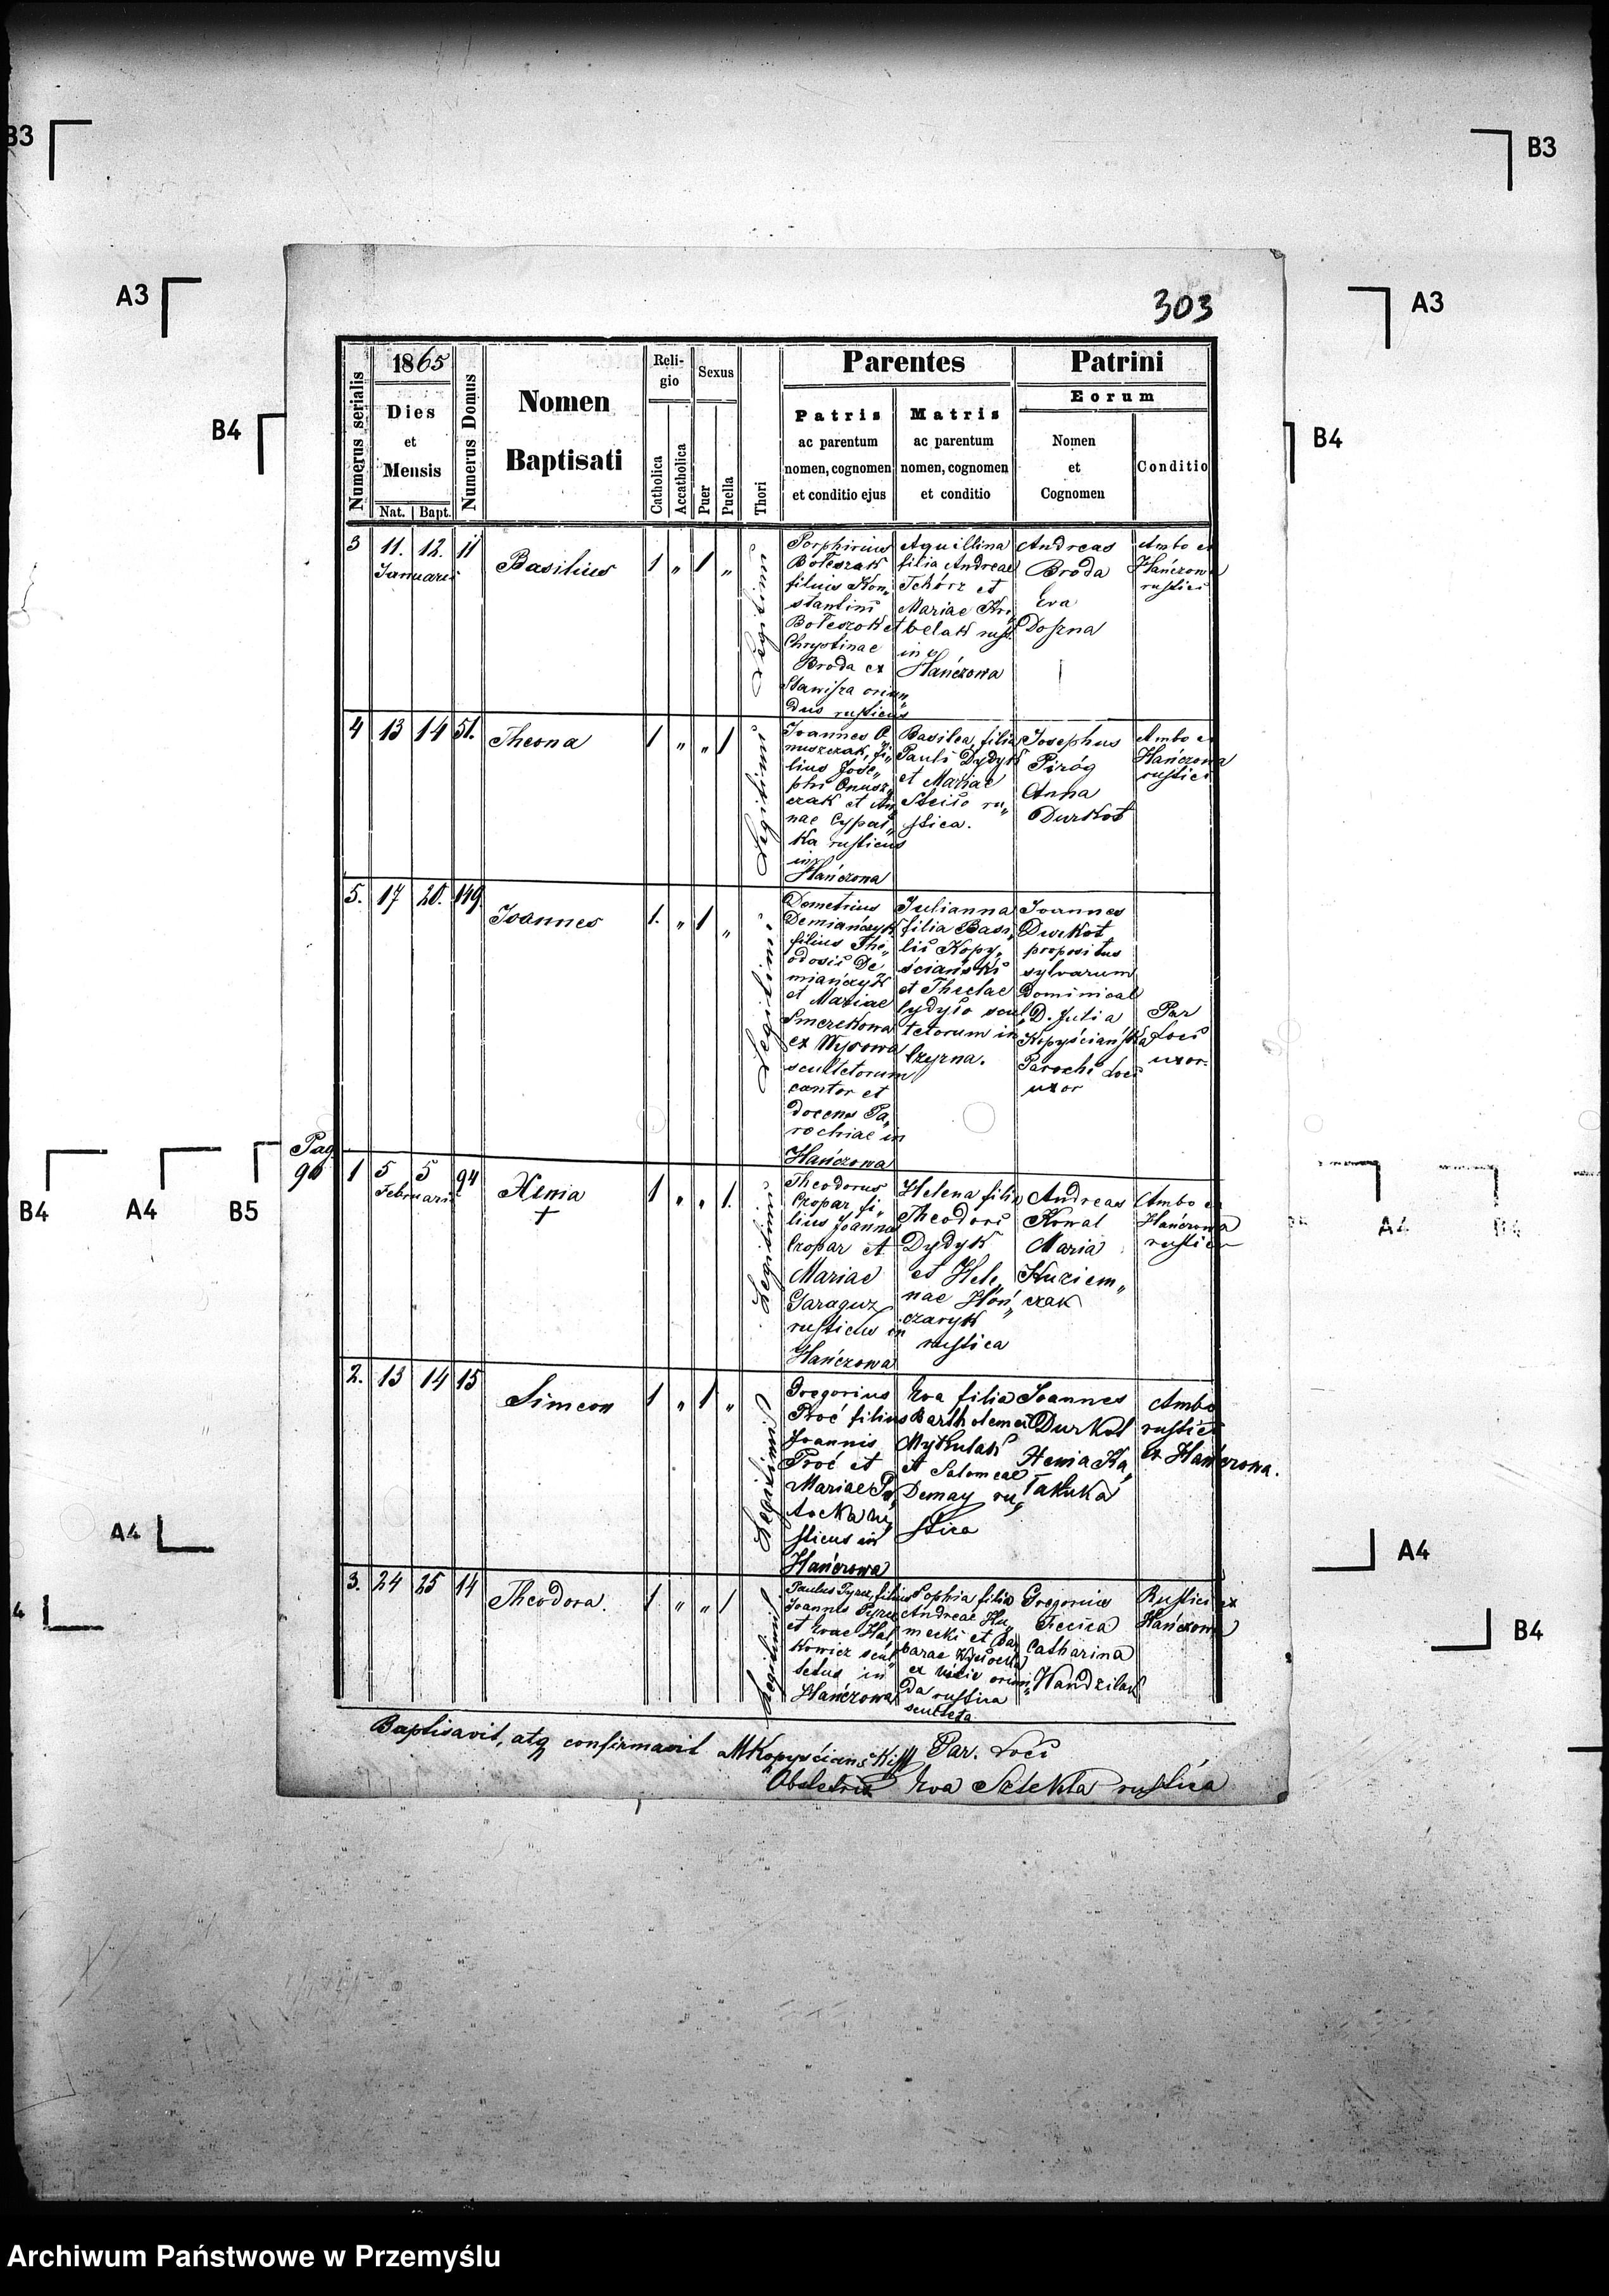 B3
B3
A3
A3
B4
B4
303
1865
Numerus serialis
Dies
et
Mensis
Nat.
Bapt.
Numerus Domus
Nomen
Baptisati
Reli-
gio
Catholica
Accatholica
Sexus
Puer
Puella
Thori
Parentes
Patris
ac parentum
nomen, cognomen
et conditio ejus
Matris
ac parentum
nomen, cognomen
et conditio
Patrini
Eorum
Nomen
et
Cognomen
Conditio
3
11.
12.
Januarii
11
Basilius
1
„
1
„
Legitimi
Porphirius
Boleszak
filius Kon„
stantini
Boleszok et
Chrystinae
Broda ex
Stawisza oriun„
dus rusticus
Aquillina
filia Andreae
Tchórz et
Mariae
rust.
in
Hańczowa
Andreas
Broda
Eva
Doszna
Ambo ex
Hańczowa
rustici
4
13
14
51.
Theona
1
„
„
1
Legitimi
Joannes O„
nuszczak, fi„
lius Jose„
phi Onusz„
czak et An„
nae
rusticus
in
Hańczowa
Basilea, filia
Pauli Dydyk
et Mariae
ru„
stica.
Josephus
Piróg
Anna
Durkot
Ambo ex
Hańczowa
rustici
5.
17
20.
149
Joannes
1.
„
1
„
Legitimi
Demetrius
Demiańczyk
filius The„
odosii De„
miańczyk
et Mariae
Smerekowa
ex Wysowa
scultetorum
cantor et
docens Pa„
rochiae in
Hańczowa
Julianna
filia Basi„
lii Kopy„
ściański
et Theclae
scul„
tetorum in
Czyrna.
Joannes
Durkot
propositus
sylvarum
Dominical
D. Julia
Kopyściańska
Parochi Loci
uxor
Par
Loci
uxor.
Pag.
90
1
5
5
Februarii
94
Xenia
+
1
„
„
1.
Legitimi
Theodorus
Czopar fi„
lius Joannes
Czopar et
Mariae
Garaguz
rusticus in
Hańczowa
Helena filia
Theodori
Dydyk
et Hele„
nae Hoń„
czaryk
rustica
Andreas
Kowal
Maria
Kuziem„
czak
Ambo ex
Hańczowa
rustici
2.
13
14
15
Simeon
1
„
1
„
Legitimi
Gregorius
Proć filius
Joannis
Proć et
Mariae
ru„
sticus in
Hańczowa
Eva filia
Bartholemei
Mykulak
et Salomeae
Demay ru„
stica
Joannes
Durkot
Xenia Ka„
Ambo
rustici
ex Hańczowa.
3.
24
25
14
Theodora.
1
„
„
1
Legitimi
Paulus Pyrcz, filius
Joannes Pyrcz
et Evae Hal„
kowicz scul„
tetus in
Hańczowa
Sophia filia
Andreae Hu„
mecki et Bar„
barae
ex oriun„
da rustica
sculteta
Gregorius
Fecica
Catharina
Wandzilak
Rustici ex
Hańczowa
Baptisavit, atq confirmavit MKopyściański Par. Loci
Obstetrix Eva rustica
B4
A4
B5
A4
A4
A4
4
B4
Archiwum Państwowe w Przemyślu